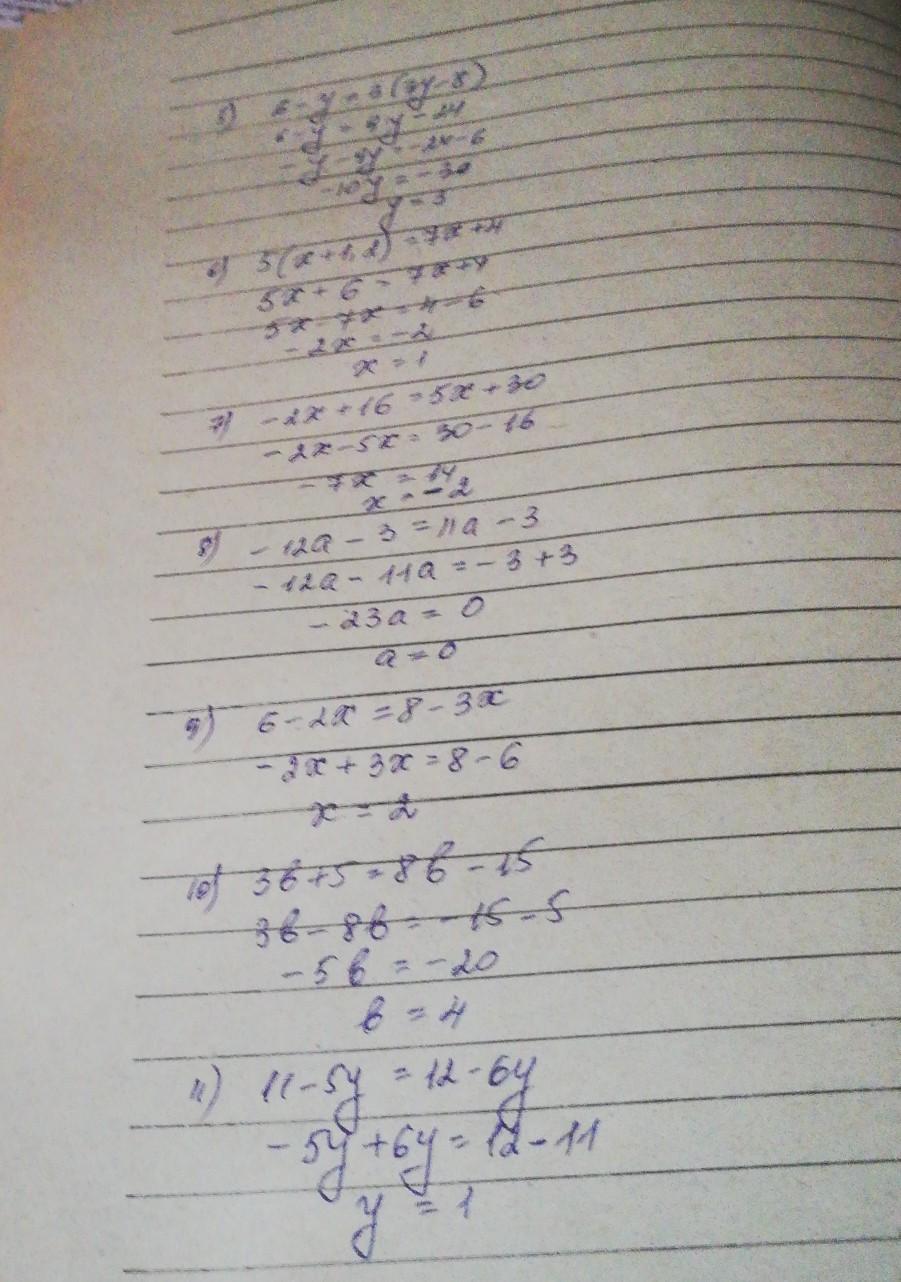 5) 6 - y = 3(3y-8)
6-y = 9y - 24
-y - 9y = -24-6
-10y = -30
y = 3
6) 5(x+1,2) = 7x+4
5x + 6 = 7x+4
5x-7x = 4-6
-2x = -2
x = 1
7) -2x+16 = 5x+30
-2x-5x = 30-16
-7x = 14
x = -2
8) -12a - 3 = 11a - 3
-12a - 11a = -3+3
-23a = 0
a = 0
9) 6-2x = 8-3x
-2x+3x = 8-6
x = 2
10) 3b+5 = 8b-15
3b-8b = -15-5
-5b = -20
b = 4
11) 11-5y = 12-6y
-5y+6y = 12-11
y = 1